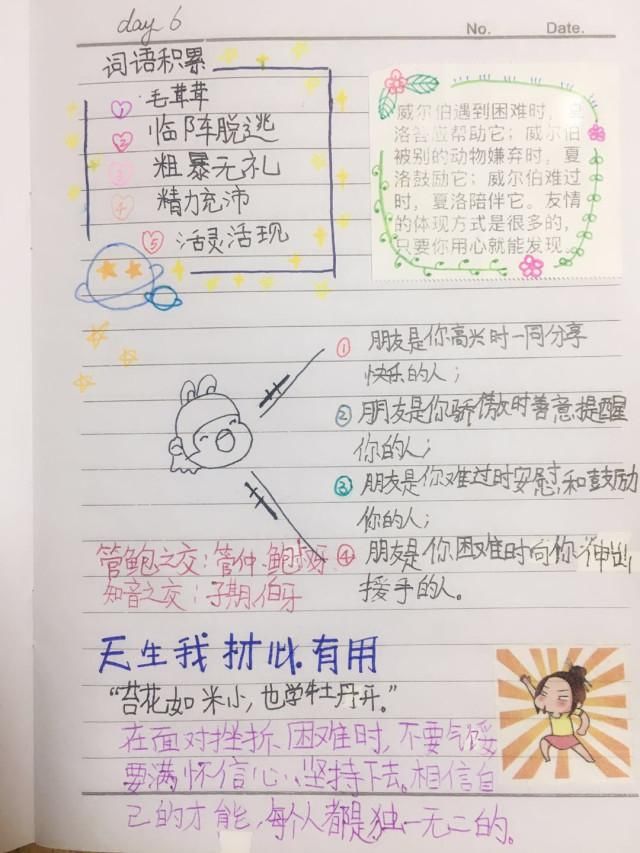 day 6
No. Date.
词语积累
1 毛茸茸
2 临阵脱逃
3 粗暴无礼
4 精力充沛
5 活灵活现
威尔伯遇到困难时，夏
洛答应帮助它；威尔伯
被别的动物嫌弃时，夏
洛鼓励它；威尔伯难过
时，夏洛陪伴它。友情
的体现方式是很多的，
只要你用心就能发现。
① 朋友是你高兴时一同分享
快乐的人；
② 朋友是你骄傲时善意提醒
你的人；
③ 朋友是你难过时安慰和鼓励
你的人；
④ 朋友是你困难时向你伸出
援手的人。
管鲍之交：管仲、鲍叔牙
知音之交：子期、伯牙
天生我材必有用
“苔花如米小，也学牡丹开。”
在面对挫折、困难时，不要气馁
要满怀信心、坚持下去。相信自
己的才能，每个人都是独一无二的。